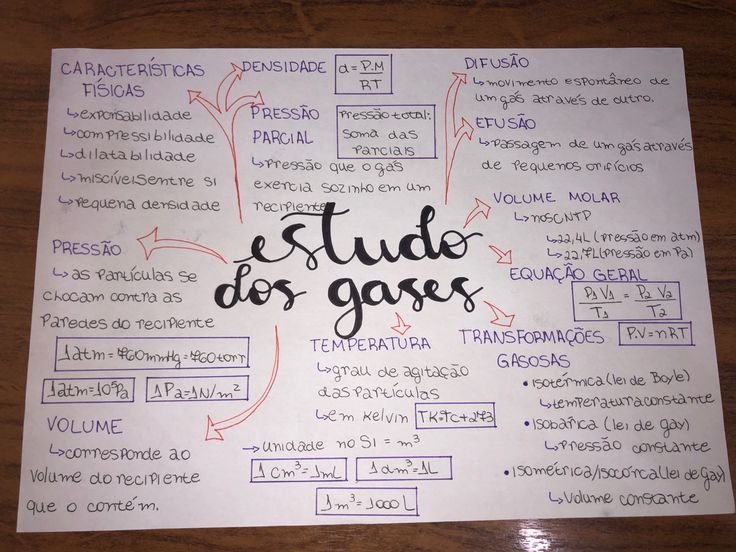 CARACTERÍSTICAS
FÍSICAS
↳ expansabilidade
↳ compressibilidade
↳ dilatabilidade
↳ miscíveis entre si
↳ pequena densidade
DENSIDADE
d = P.M
RT
PRESSÃO
PARCIAL
Pressão total:
soma das
parciais
↳ Pressão que o gás
exercia sozinho em um
recipiente
DIFUSÃO
↳ movimento espontâneo de
um gás através de outro.
EFUSÃO
↳ Passagem de um gás através
de pequenos orifícios
VOLUME MOLAR
↳ nos CNTP
↳ 22,4L (pressão em atm)
↳ 22,7L (pressão em Pa)
estudo
dos gases
PRESSÃO
↳ as partículas se
chocam contra as
paredes do recipiente
1atm = 760mmHg = 760torr
1atm = 10⁵Pa
1Pa = 1N/m²
EQUAÇÃO GERAL
P₁V₁ = P₂V₂
T₁ T₂
P.V = nRT
TEMPERATURA
↳ grau de agitação
das partículas
↳ em Kelvin
TK = Tc + 273
TRANSFORMAÇÕES
GASOSAS
• Isotérmica (lei de Boyle)
↳ temperatura constante
• Isobárica (lei de gay)
↳ Pressão constante
• Isométrica/isocórca (lei de Gay)
↳ Volume constante
VOLUME
↳ corresponde ao
volume do recipiente
que o contém.
→ unidade no SI = m³
1cm³ = 1mL
1dm³ = 1L
1m³ = 1000L